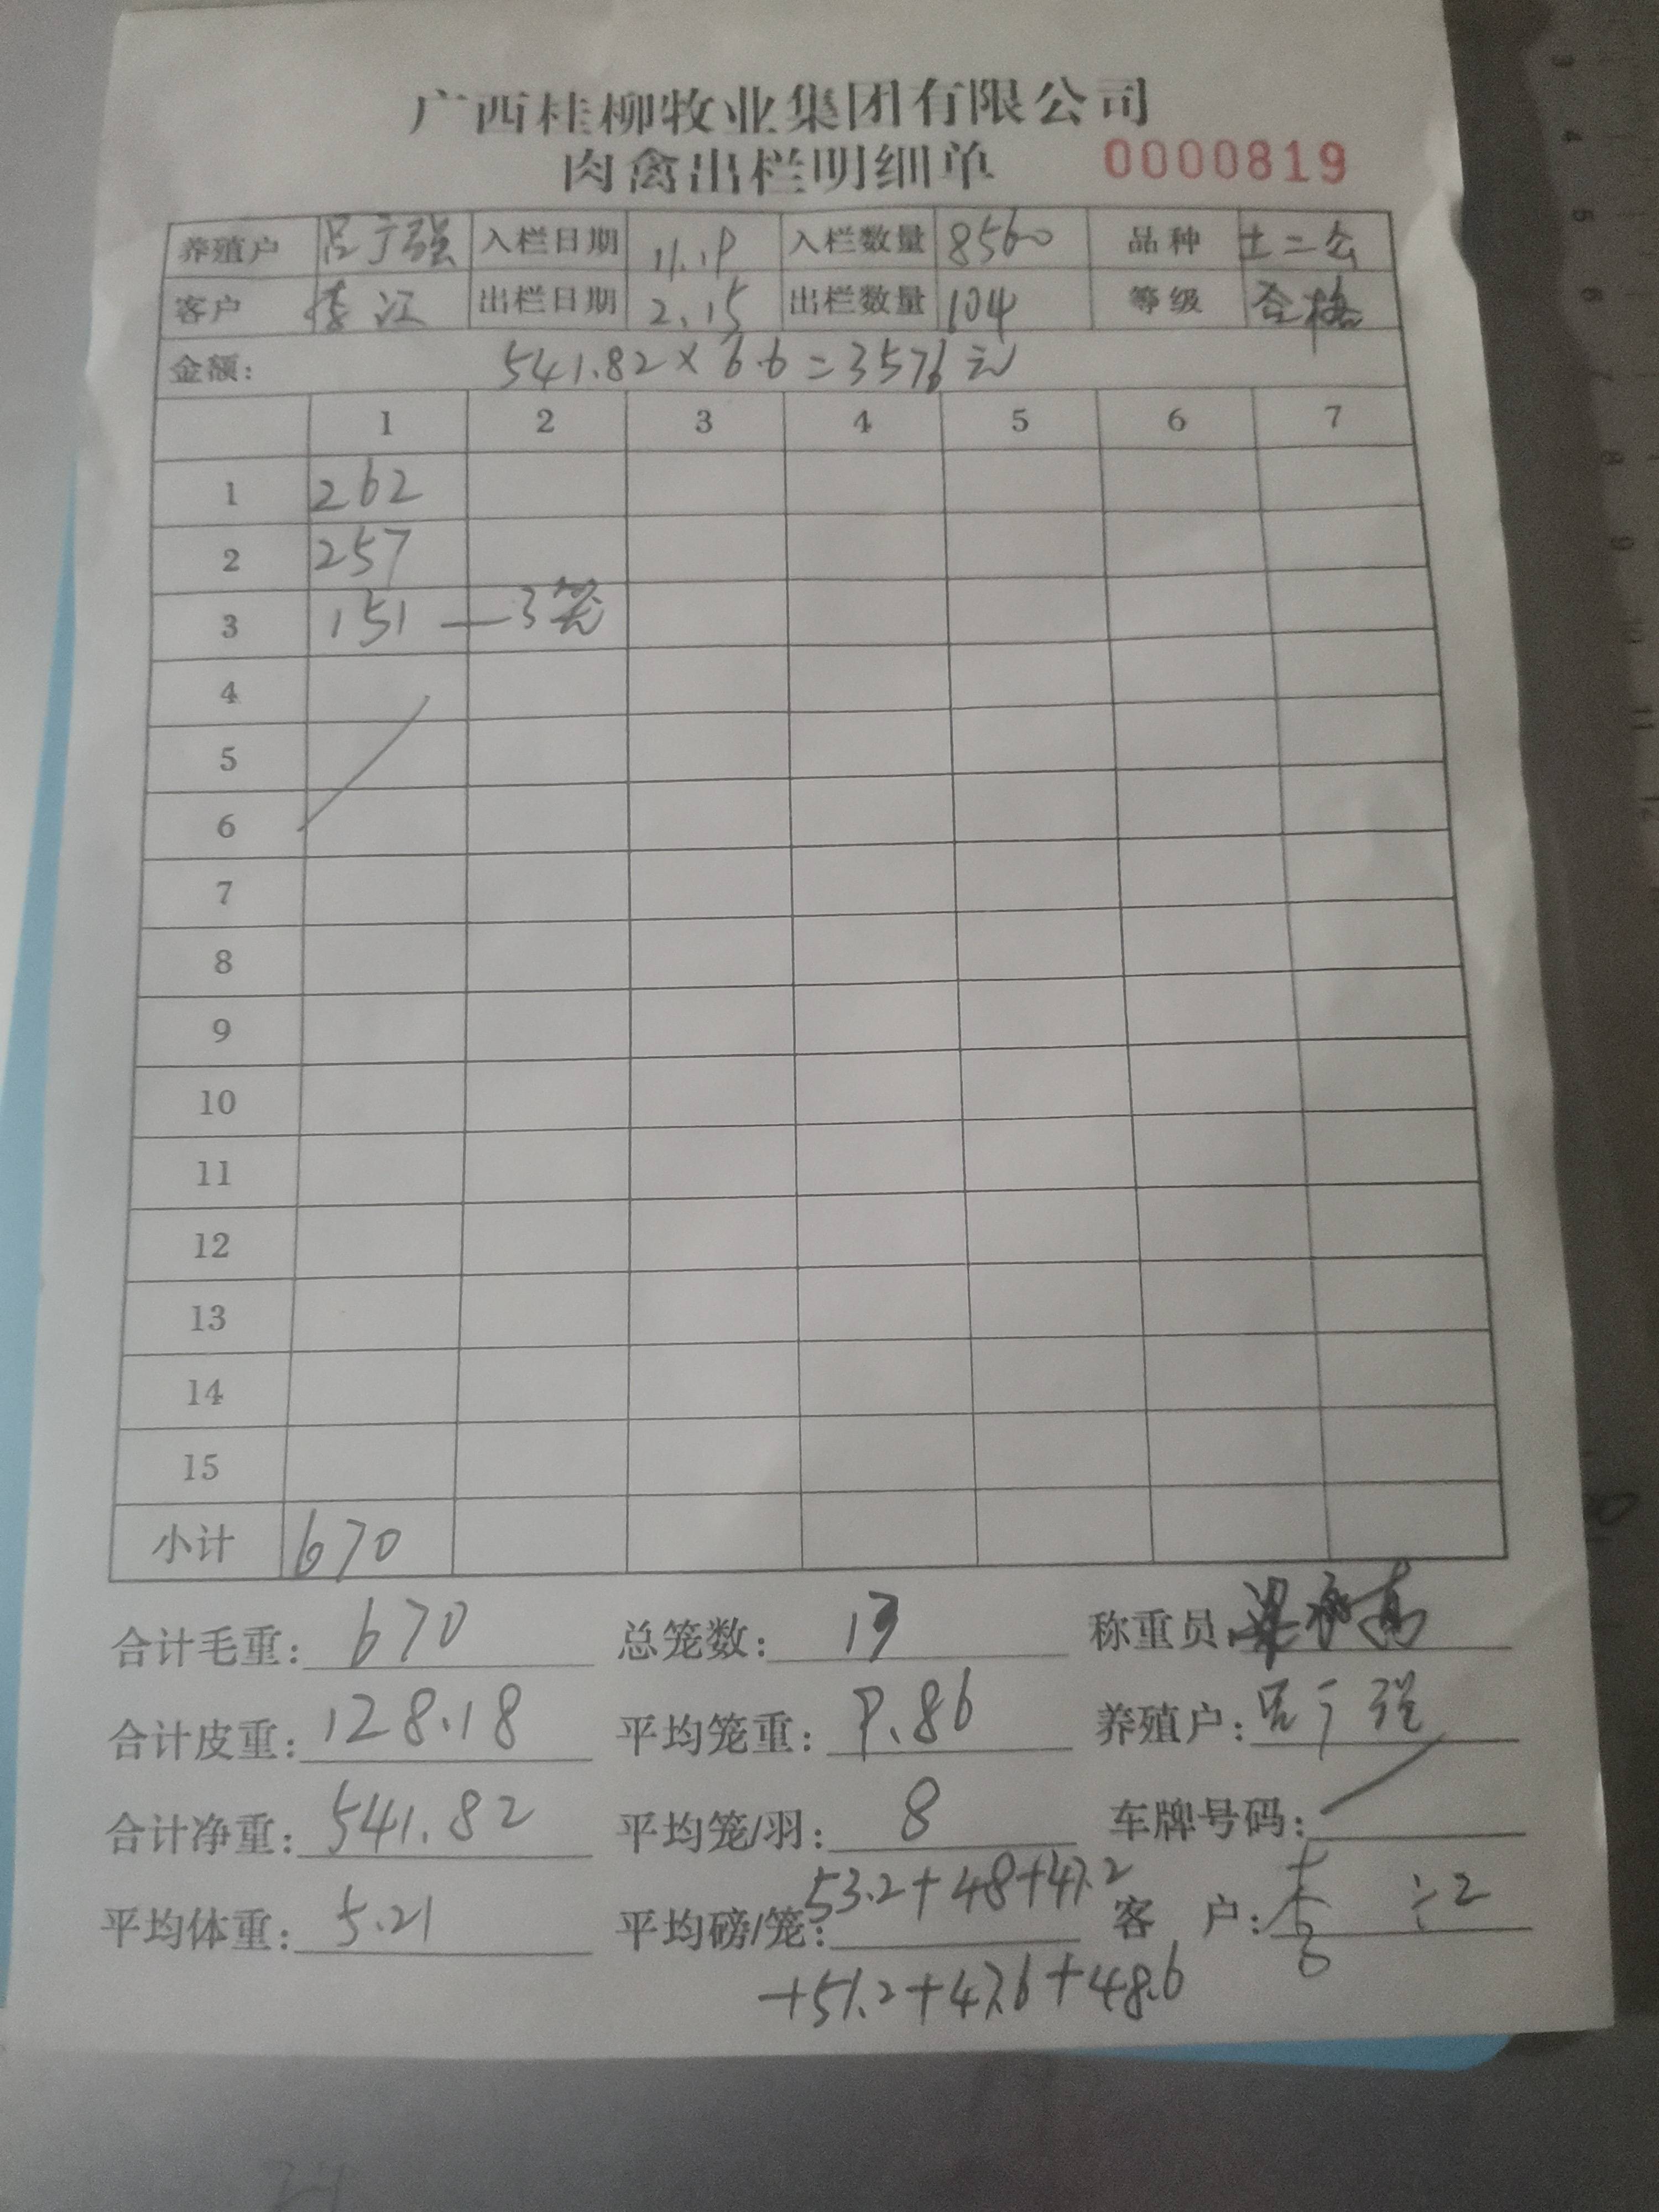 广西桂柳牧业集团有限公司
肉禽出栏明细单 0000819
养殖户 吕于强 入栏日期 11.19 入栏数量 8560 品种 土二公
客户 李江 出栏日期 2.15 出栏数量 104 等级 合格
金额: 541.82×6.6=3576元
1 2 3 4 5 6 7
1 262
2 257
3 151 — 3笼
4
5
6
7
8
9
10
11
12
13
14
15
小计 670
合计毛重: 670 总笼数: 13 称重员:
合计皮重: 128.18 平均笼重: 9.86 养殖户: 吕于强
合计净重: 541.82 平均笼/羽: 8 车牌号码:
平均体重: 5.21 平均磅/笼: 53.2+48+47.2 客 户: 李 ÷2
+51.2+47.6+48.6